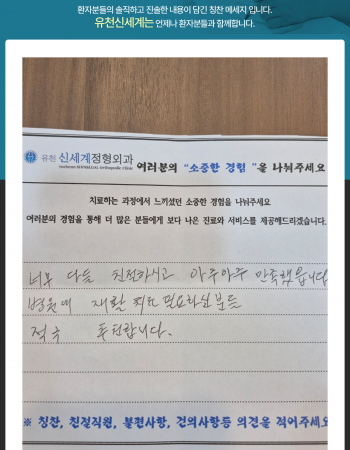 환자분들의 솔직하고 진솔한 내용이 담긴 칭찬 메세지 입니다.
유천신세계는 언제나 환자분들과 함께합니다.
유천 신세계정형외과
여러분의 "소중한 경험"을 나눠주세요
치료하는 과정에서 느끼셨던 소중한 경험을 나눠주세요
여러분의 경험을 통해 더 많은 분들에게 보다 나은 진료와 서비스를 제공해드리겠습니다.
너무 다들 친절하시고 아주아주 만족했읍니다
병원에 재활 필요하신분들
적극 추천합니다.
※ 칭찬, 친절직원, 불편사항, 건의사항등 의견을 적어주세요